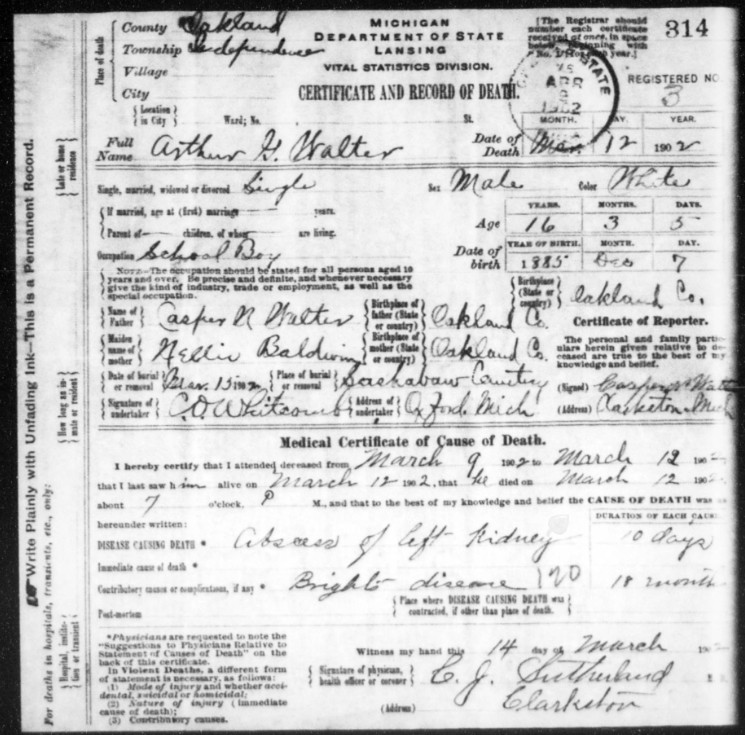 Place of death
County Oakland
Township Independence
Village
City
MICHIGAN
DEPARTMENT OF STATE
LANSING
VITAL STATISTICS DIVISION.
CERTIFICATE AND RECORD OF DEATH.
[The Registrar should
number each certificate
received at once, in space
below, beginning with
No. 1 for each year.]
314
REGISTERED NO.
3
STATE
APR
8
1902
Location is in City
Ward; No.
St.
Full Name Arthur G. Walter
Date of Death
MONTH. DAY. YEAR.
Mar. 12 1902
Single, married, widowed or divorced Single Sex Male Color White
If married, age at (first) marriage years.
Parent of — children, of whom are living.
Age
YEARS. MONTHS. DAYS.
16 3 5
Occupation School Boy
Date of birth
YEAR OF BIRTH. MONTH. DAY.
1885 Dec 7
NOTE.—The occupation should be stated for all persons aged 10
years and over. Be precise and definite, and whenever necessary
give the kind of industry, trade or employment, as well as the
special occupation.
Birthplace (State or country) Oakland Co.
Name of Father Casper N Walter
Birthplace of father (State or country) Oakland Co.
Maiden name of mother Nellie Baldwin
Birthplace of mother (State or country) Oakland Co.
Certificate of Reporter.
The personal and family partic-
ulars herein given relative to de-
ceased are true to the best of my
knowledge and belief.
Date of burial or removal Mar. 15 1902
Place of burial or removal Sashabaw Cemetery
(Signed) Casper N Walt
Signature of undertaker C. D. Whitcomb
Address of undertaker Oxford. Mich
(Address) Clarkston Mich
Medical Certificate of Cause of Death.
I hereby certify that I attended deceased from March 9 1902 to March 12 190
that I last saw him alive on March 12 1902, that he died on March 12 190
about 7 o'clock, P M., and that to the best of my knowledge and belief the CAUSE OF DEATH was as
hereunder written:
DURATION OF EACH CAUSE
DISEASE CAUSING DEATH * Abscess of left Kidney 10 days
Immediate cause of death *
Contributory causes or complications, if any * Brights disease 120 18 month
Place where DISEASE CAUSING DEATH was
contracted, if other than place of death.
Post-mortem
*Physicians are requested to note the
"Suggestions to Physicians Relative to
Statement of Causes of Death" on the
back of this certificate.
In Violent Deaths, a different form
of statement is necessary, as follows:
(1) Mode of injury and whether acci-
dental, suicidal or homicidal;
(2) Nature of injury (immediate
cause of death);
(3) Contributory causes.
Witness my hand this 14 day of March 190
Signature of physician, health officer or coroner C. J. Sutherland
(Address) Clarkston
Write Plainly with Unfading Ink—This is a Permanent Record.
For deaths in hospitals, transients, etc., only:
Late or home residence
How long an inmate or resident
Hospital, institution or transient